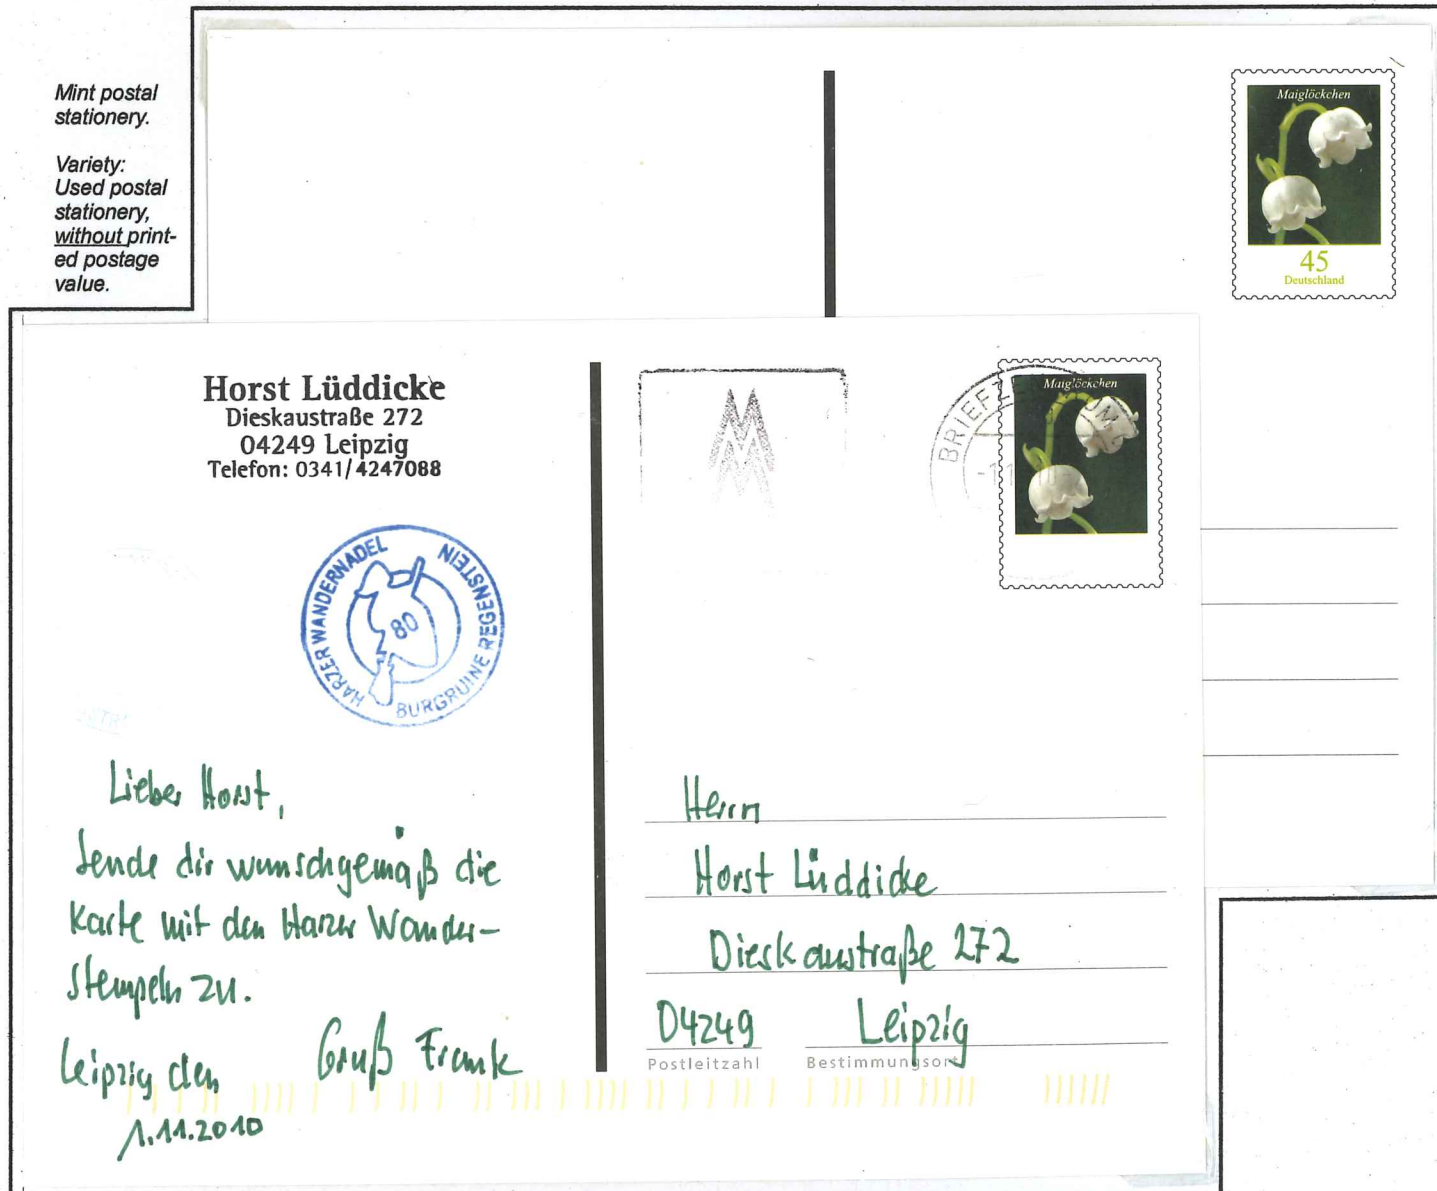 Mint postal
stationery.
Variety:
Used postal
stationery,
without print-
ed postage
value.
Maiglöckchen
45
Deutschland
Horst Lüddicke
Dieskaustraße 272
04249 Leipzig
Telefon: 0341/4247088
Maiglöckchen
HARZER WANDERNADEL
BURGRUINE REGENSTEIN
80
Lieber Horst,
sende dir wunschgemäß die
Karte mit den Harzer Wander-
stempeln zu.
Gruß Frank
Leipzig den
1.11.2010
Herrn
Horst Lüddicke
Dieskaustraße 272
04249 Leipzig
Postleitzahl Bestimmungsort